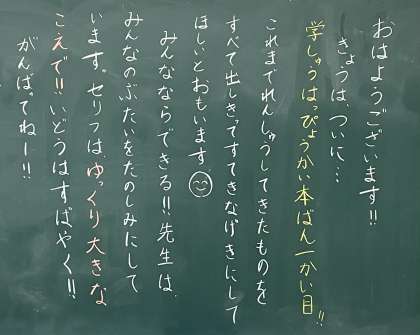 おはようございます!!
きょうは、ついに…
学しゅうはっぴょうかい本ばん一かい目!!
これまでれんしゅうしてきたものを
すべて出しきってすてきなげきにして
ほしいとおもいます。
みんなならできる!!先生は、
みんなのぶたいをたのしみにして
います。セリフは、ゆっくり大きな
こえで!!いどうはすばやく!!
がんばってねー!!